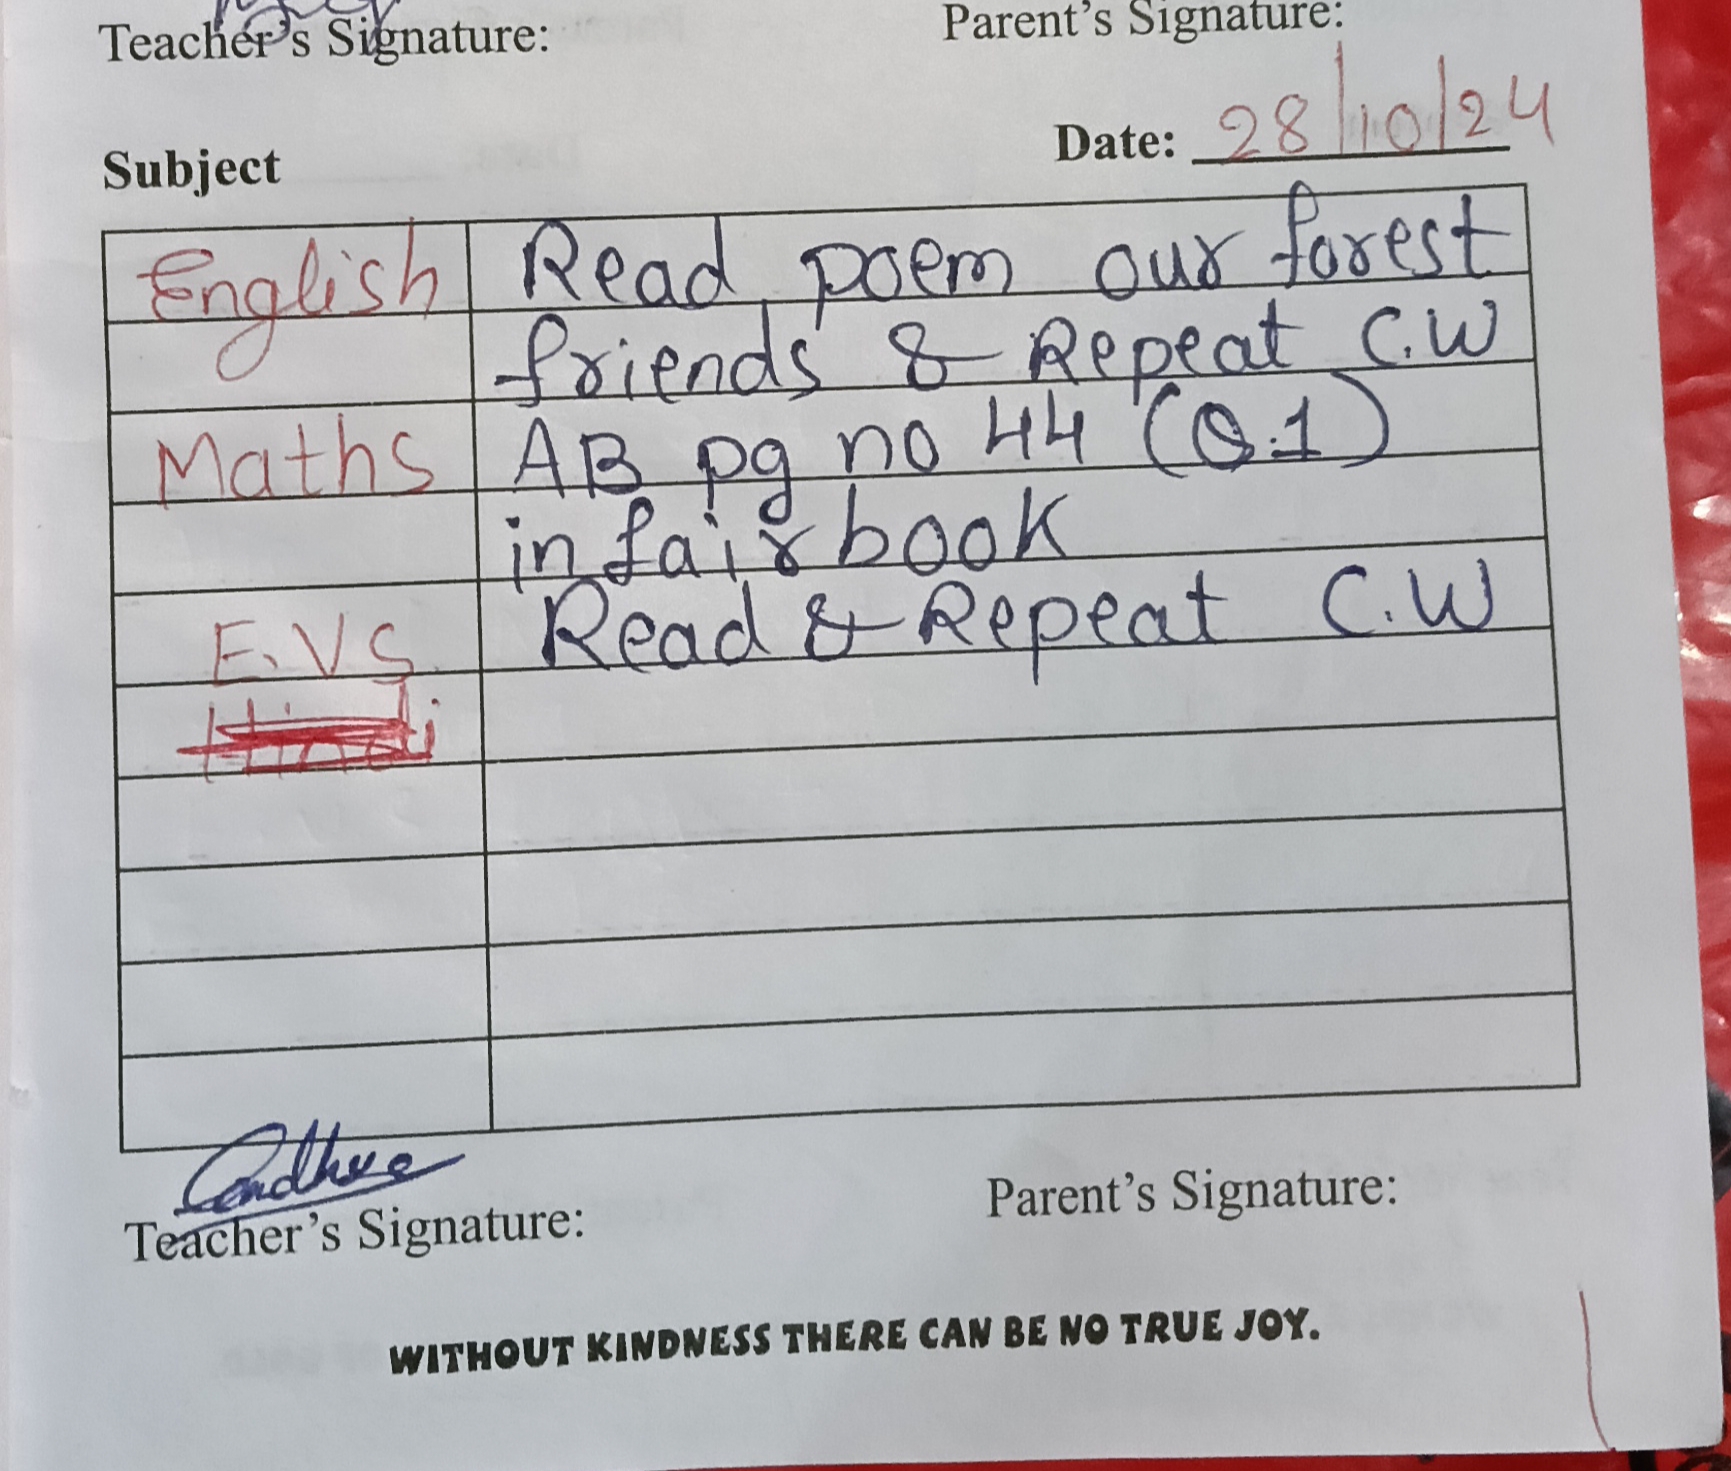 Teacher's Signature: Parent's Signature:
Date: 28/10/24
Subject
English Read poem our forest
friends & Repeat C.W
Maths AB pg no 44 (Q.1)
in fair book
E.V.S Read & Repeat C.W
Hindi
Teacher's Signature: Parent's Signature:
WITHOUT KINDNESS THERE CAN BE NO TRUE JOY.